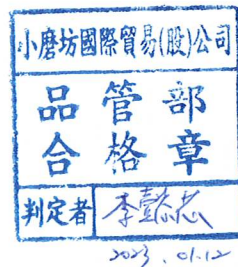 小磨坊國際貿易(股)公司
品管部
合格章
判定者 李懿芯
2023.01.12